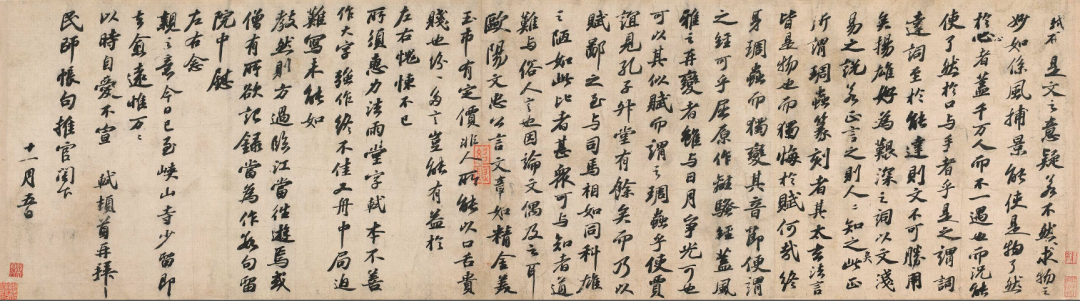 是文之意疑若不然求物之
妙如係風捕景能使是物了然
於心者蓋千萬人而不一遇也而況能
使了然於口與手者乎是之謂詞
達詞至於能達則文不可勝用
矣揚雄好為艱深之詞以文淺
易之說若正言之則人人知之矣此正
所謂琱蟲篆刻者其太玄法言
皆是物也而獨悔於賦何哉終
身琱蟲而獨變其音節便謂
之經可乎屈原作離騷經蓋風
雅之再變者雖與日月爭光可也
可以其似賦而謂之琱蟲乎使賈
誼見孔子升堂有餘矣而乃以
賦鄙之至與司馬相如同科雄
之陋如此比者甚衆可與知者道
難與俗人言也因論文偶及之耳
歐陽文忠公言文章如精金美
玉市有定價非人所能以口舌貴
賤也紛紛多言豈能有益於
左右愧悚不已
所須惠力法雨堂字軾本不善
作大字強作終不佳又舟中局迫
難寫未能如
教然則方過臨江當往遊焉或
僧有所欲記録當為作數句留
院中慰
左右念
親之意今日已至峽山寺少留即
去愈遠惟萬萬
以時自愛不宣 軾頓首再拜
民師帳句推官閣下
十一月五日